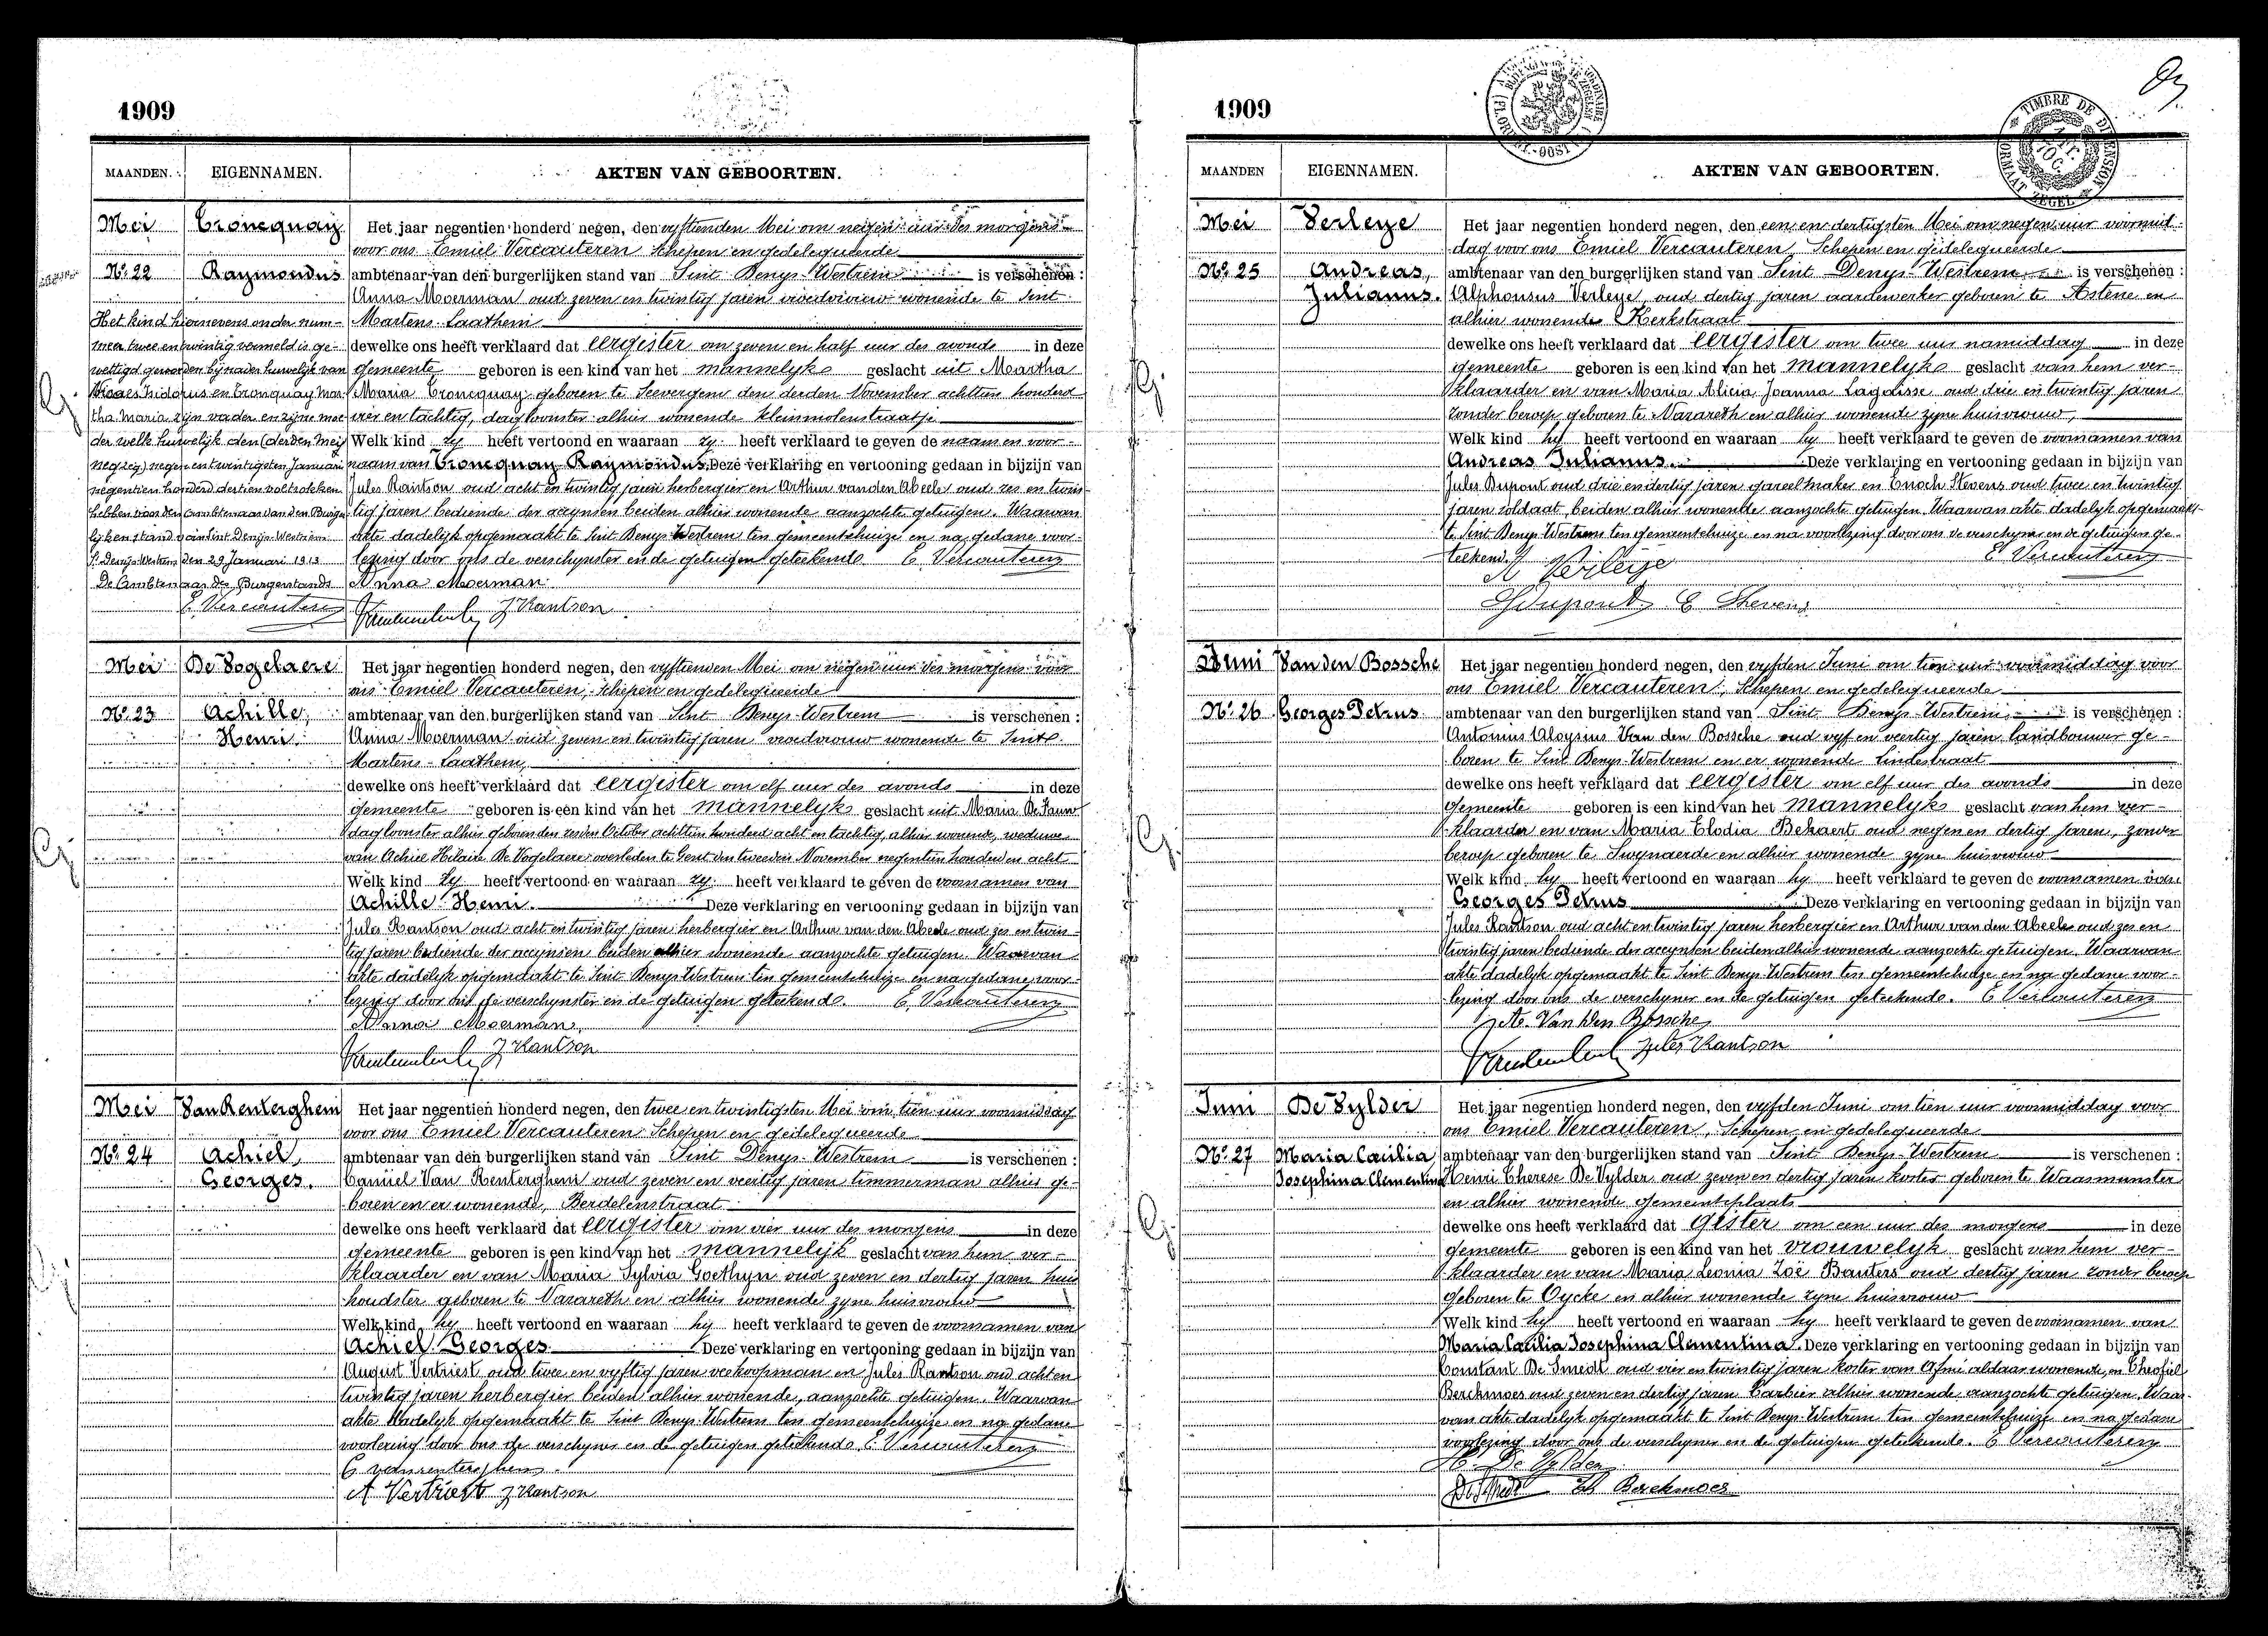 1909
MAANDEN. EIGENNAMEN. AKTEN VAN GEBOORTEN.
Mei Croncquay Het jaar negentien honderd negen, den vyftienden Mei om negen uur des morgens
voor ons Emiel Vercauteren Schepen en gedelegueerde
No. 22 Raymondus ambtenaar van den burgerlijken stand van Sint Denys-Westrem is verschenen :
Anna Moerman oud zeven en twintig jaren vroedvrouw wonende te Sint
Martens-Laathem
dewelke ons heeft verklaard dat eergister om zeven en half uur des avonds in deze
gemeente geboren is een kind van het mannelyks geslacht uit Martha
Maria Croncquay geboren te Seevergem den derden November achttien honderd
vier en tachtig, dagloonster alhier wonende kleinmolenstraatje
Welk kind zy heeft vertoond en waaraan zy heeft verklaard te geven de naam en voor-
naam van Croncquay Raymondus. Deze verklaring en vertooning gedaan in bijzijn van
Jules Rantson oud acht en twintig jaren herbergier en Arthur van den Abeele oud zes en twin-
tig jaren bediende der accynsen beiden alhier wonende aanzochte getuigen. Waarvan
akte dadelyk opgemaakt te Sint Denys Westrem ten gemeentehuize en na gedane voor-
lezing door ons de verschynster en de getuigen geteekend. E. Vercauteren
Anna Moerman
J Rantson
Het kind hiernevens onder num-
mer twee en twintig vermeld is ge-
wettigd geworden bij nader huwelijk van
Isidorus en Cronquay Mar-
tha Maria zijn vader en zijne moe-
der welk huwelijk den (derden Meij
neg) negen en twintigsten Januari
negentien honderd dertien voltrokken
hebben voor den Ambtenaar van den Burger-
lijken stand van Sint Denijs-Westrem
St Denijs-Westrem den 29 Januari 1913
De Ambtenaar des Burgerstands
E. Vercauteren
Mei De Vogelaere Het jaar negentien honderd negen, den vyftienden Mei om negen uur des morgens voor
ons Emiel Vercauteren, Schepen en gedelegueerde
No. 23 Achille, ambtenaar van den burgerlijken stand van Sint Denys-Westrem is verschenen :
Henri. Anna Moerman oud zeven en twintig jaren vroedvrouw wonende te Sint
Martens-Laathem,
dewelke ons heeft verklaard dat eergister om elf uur des avonds in deze
gemeente geboren is een kind van het mannelyks geslacht uit Maria De Pauw
dagloonster alhier geboren den zesden October achttien honderd acht en tachtig, alhier wonende, weduwe
van Achiel Hilaire De Vogelaere overleden te Gent den tweeden November negentien honderd en acht
Welk kind zy heeft vertoond en waaraan zy heeft verklaard te geven de voornamen van
Achille Henri. Deze verklaring en vertooning gedaan in bijzijn van
Jules Rantson oud acht en twintig jaren herbergier en Arthur van den Abeele oud zes en twin-
tig jaren bediende der accynsen beiden alhier wonende aanzochte getuigen. Waarvan
akte dadelyk opgemaakt te Sint Denys Westrem ten gemeentehuize en na gedane voor-
lezing door ons de verschynster en de getuigen geteekend. E. Vercauteren
Anna Moerman
J Rantson
Mei Van Renterghem Het jaar negentien honderd negen, den twee en twintigsten Mei om tien uur voormiddag
voor ons Emiel Vercauteren Schepen en gedelegueerde
No. 24 Achiel, ambtenaar van den burgerlijken stand van Sint Denys-Westrem is verschenen :
Georges. Camiel Van Renterghem oud zeven en veertig jaren timmerman alhier ge-
boren en er wonende, Berdelenstraat
dewelke ons heeft verklaard dat eergister om vier uur des morgens in deze
gemeente geboren is een kind van het mannelijk geslacht van hem ver-
klaarder en van Maria Sylvia Goethyn oud zeven en dertig jaren huis
houdster geboren te Nazareth en alhier wonende zyne huisvrouw
Welk kind hy heeft vertoond en waaraan hij heeft verklaard te geven de voornamen van
Achiel Georges. Deze verklaring en vertooning gedaan in bijzijn van
August Vertriest oud twee en vyftig jaren veekoopman en Jules Rantson oud acht en
twintig jaren herbergier beiden alhier wonende, aanzochte getuigen. Waarvan
akte dadelyk opgemaakt te Sint Denys Westrem ten gemeentehuize en na gedane
voorlezing door ons de verschyner en de getuigen geteekend. E. Vercauteren
C vanrenterghem
A Vertriest J Rantson
1909
MAANDEN EIGENNAMEN. AKTEN VAN GEBOORTEN.
TIMBRE DE DIMENSION
Mei Verleye Het jaar negentien honderd negen, den een en dertigsten Mei om negen uur voormid-
dag voor ons Emiel Vercauteren, Schepen en gedelegueerde
No. 25 Andreas, ambtenaar van den burgerlijken stand van Sint Denys-Westrem is verschenen :
Julianus. Alphonsus Verleye, oud dertig jaren aardewerker geboren te Astene en
alhier wonende Kerkstraat
dewelke ons heeft verklaard dat eergister om twee uur namiddag in deze
gemeente geboren is een kind van het mannelyks geslacht van hem ver-
klaarder en van Maria Alicia Joanna Lagaisse oud drie en twintig jaren
zonder beroep, geboren te Nazareth en alhier wonende zyne huisvrouw,
Welk kind hy heeft vertoond en waaraan hy heeft verklaard te geven de voornamen van
Andreas Julianus. Deze verklaring en vertooning gedaan in bijzijn van
Jules Dupont oud drie en dertig jaren gareelmaker en Enoch Stevens oud twee en twintig
jaren soldaat, beiden alhier wonende aanzochte getuigen. Waarvan akte dadelyk opgemaakt
te Sint Denys Westrem ten gemeentehuize en na voorlezing door ons de verschyner en de getuigen ge-
teekend. E. Vercauteren
A Verleije
J Dupont E Stevens
Juni Van den Bossche Het jaar negentien honderd negen, den vyfden Juni om tien uur voormiddag voor
ons Emiel Vercauteren, Schepen en gedelegueerde
No. 26 Georges Petrus ambtenaar van den burgerlijken stand van Sint Denys-Westrem is verschenen :
Antonius Aloysius Van den Bossche oud vyf en veertig jaren landbouwer ge-
boren te Sint Denys Westrem en er wonende Lindestraat
dewelke ons heeft verklaard dat eergister om elf uur des avonds in deze
gemeente geboren is een kind van het mannelyks geslacht van hem ver-
klaarder en van Maria Elodia Bekaert oud negen en dertig jaren, zonder
beroep geboren te Swynaerde en alhier wonende zyne huisvrouw
Welk kind hy heeft vertoond en waaraan hy heeft verklaard te geven de voornamen van
Georges Petrus Deze verklaring en vertooning gedaan in bijzijn van
Jules Rantson oud acht en twintig jaren herbergier en Arthur van den Abeele oud zes en
twintig jaren bediende der accynsen beiden alhier wonende aanzochte getuigen. Waarvan
akte dadelyk opgemaakt te Sint Denys Westrem ten gemeentehuize en na gedane voor-
lezing door ons de verschyner en de getuigen geteekend. E Vercauteren
Van den Bossche
Jules Rantson
Juni De Vylder Het jaar negentien honderd negen, den vyfden Juni om tien uur voormiddag voor
ons Emiel Vercauteren, Schepen en gedelegueerde
No. 27 Maria Caecilia ambtenaar van den burgerlijken stand van Sint Denys-Westrem is verschenen :
Josephina Clementina Henri Therese De Vylder oud zeven en dertig jaren koster geboren te Waasmunster
en alhier wonende gemeenteplaats
dewelke ons heeft verklaard dat gister om een uur des morgens in deze
gemeente geboren is een kind van het vrouwelyk geslacht van hem ver-
klaarder en van Maria Leonia Zoë Bauters oud dertig jaren zonder beroep
geboren te Oycke en alhier wonende zyne huisvrouw
Welk kind hy heeft vertoond en waaraan hy heeft verklaard te geven de voornamen van
Maria Caecilia Josephina Clementina. Deze verklaring en vertooning gedaan in bijzijn van
Constant De Smedt oud vier en twintig jaren koster van Afsné aldaar wonende, en Theofiel
Berckmoes oud zeven en dertig jaren barbier alhier wonende aanzochte getuigen. Waar-
van akte dadelyk opgemaakt te Sint Denys Westrem ten gemeentehuize en na gedane
voorlezing door ons de verschyner en de getuigen geteekend. E Vercauteren
H. De Vylder
De Smedt Th Berckmoes